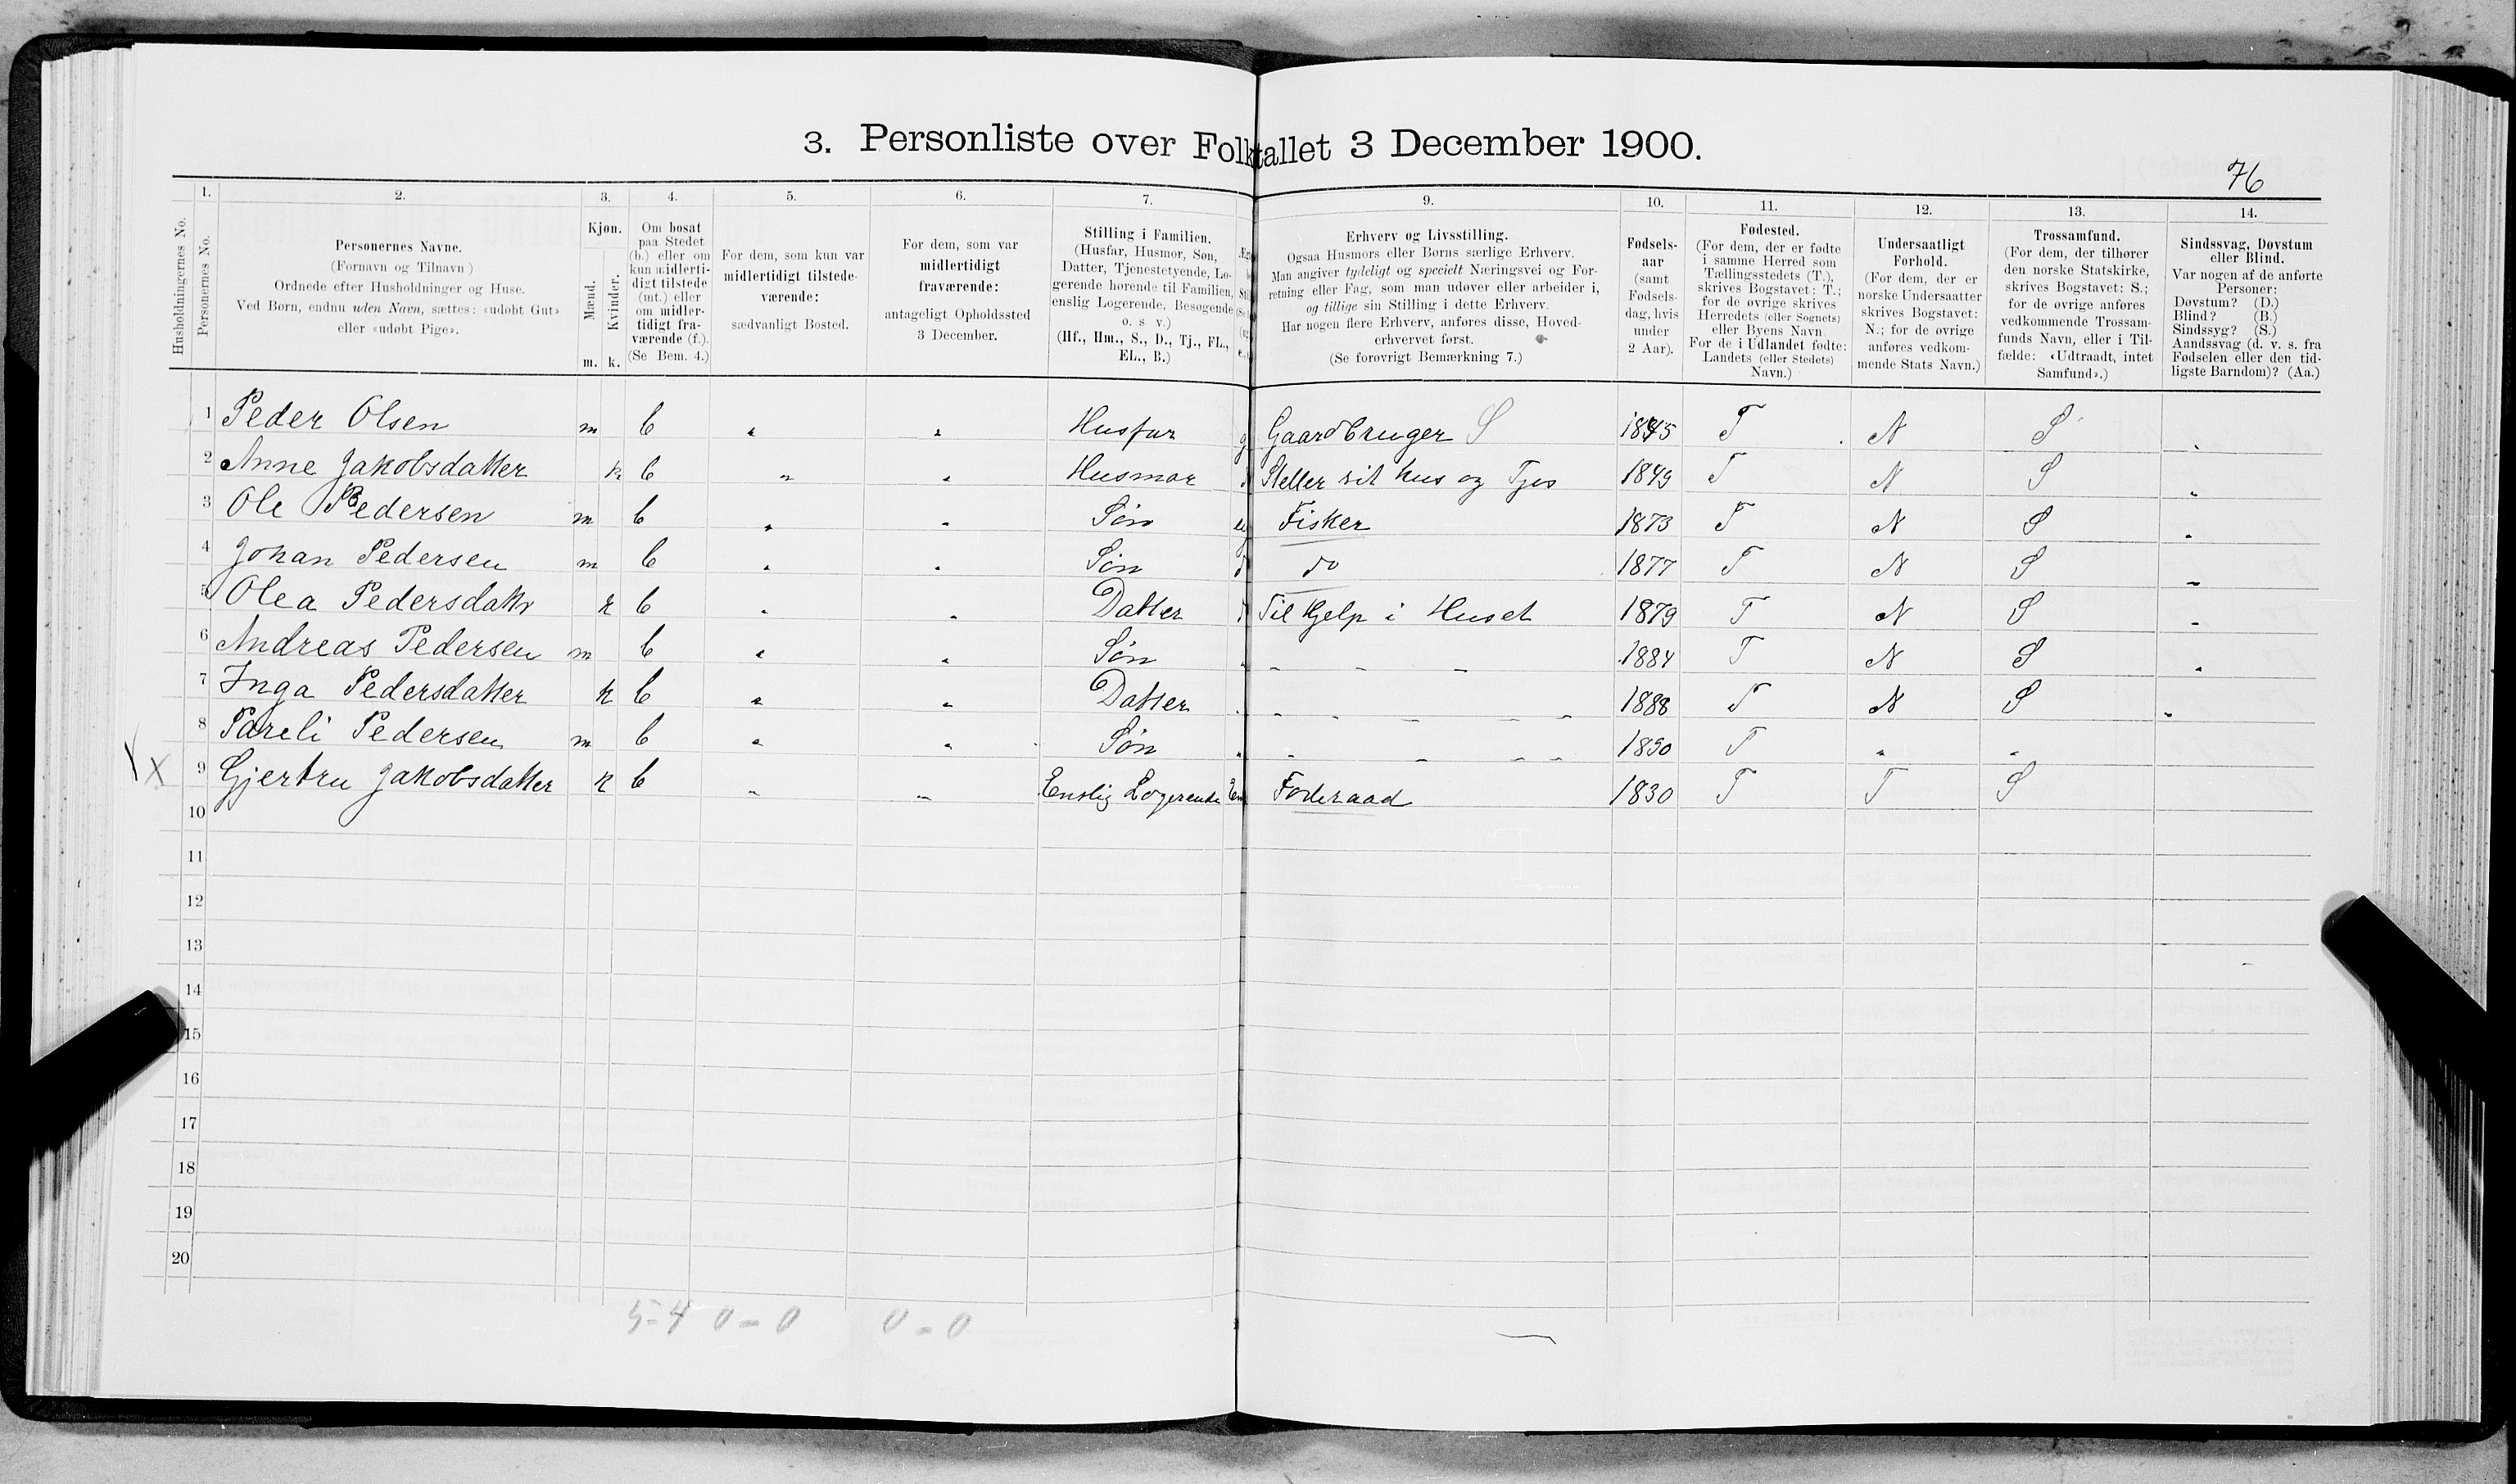 3. Personliste over Folketallet 3 December 1900.
76
Husholdningernes No.
1.
Personernes No.
2.
Personernes Navne.
(Fornavn og Tilnavn)
Ordnede efter Husholdninger og Huse.
Ved Børn, endnu uden Navn, sættes: «udøbt Gut»
eller «udøbt Pige».
3.
Kjøn.
Mænd.
Kvinder.
m. k.
4.
Om bosat
paa Stedet
(b.) eller om
kun midlerti-
digt tilstede
(mt.) eller
om midler-
tidigt fra-
værende (f.).
(Se Bem. 4.)
5.
For dem, som kun var
midlertidigt tilstede-
værende:
sædvanligt Bosted.
6.
For dem, som var
midlertidigt
fraværende:
antageligt Opholdssted
3 December.
7.
Stilling i Familien.
(Husfar, Husmor, Søn,
Datter, Tjenestetyende, Lo-
gerende hørende til Familien,
enslig Logerende, Besøgende
o. s v.)
(Hf., Hm., S., D., Tj., FL.,
EL., B.)
9.
Erhverv og Livsstilling.
Ogsaa Husmors eller Børns særlige Erhverv.
Man angiver tydeligt og specielt Næringsvei og For-
retning eller Fag, som man udøver eller arbeider i,
og tillige sin Stilling i dette Erhverv.
Har nogen flere Erhverv, anføres disse, Hoved-
erhvervet først.
(Se forøvrigt Bemærkning 7.)
10.
Fødsels-
aar
(samt
Fødsels-
dag, hvis
under
2 Aar).
11.
Fødested.
(For dem, der er fødte
i samme Herred som
Tællingsstedets (T.),
skrives Bogstavet: T.;
for de øvrige skrives
Herredets (eller Sognets)
eller Byens Navn.
For de i Udlandet fødte:
Landets (eller Stedets)
Navn.)
12.
Undersaatligt
Forhold.
(For dem, der er
norske Undersaatter
skrives Bogstavet:
N.; for de øvrige
anføres vedkom-
mende Stats Navn.)
13.
Trossamfund.
(For dem, der tilhører
den norske Statskirke,
skrives Bogstavet: S.;
for de øvrige anføres
vedkommende Trossam-
funds Navn, eller i Til-
fælde: «Udtraadt, intet
Samfund».)
14.
Sindssvag, Døvstum
eller Blind.
Var nogen af de anførte
Personer:
Døvstum? (D.)
Blind? (B.)
Sindssyg? (S.)
Aandssvag (d. v. s. fra
Fødselen eller den tid-
ligste Barndom)? (Aa.)
1 Peder Olsen m b " " Husfar g Gaardbruger S 1845 T N S "
2 Anne Jakobsdatter k b " " Husmor Steller sit hus og Fjøs 1849 T N S "
3 Ole Pedersen m b " " Søn ug Fisker 1873 T N S "
4 Johan Pedersen m b " " Søn do 1877 T N S "
5 Olea Pedersdattr k b " " Datter Til Hjelp i Huset 1879 T N S "
6 Andreas Pedersen m b " " Søn " " " 1884 T N S "
7 Inga Pedersdatter k b " " Datter " " " " " 1888 T N S "
8 Pareli Pedersen m b " " Søn " " " " 1890 T " "
X 9 Gjertru Jakobsdatter k b " " Enslig Logerende En Foderaad 1830 T T S
10
11
12
13
14
15
16
17
18
19
20
5-4 0-0 0-0